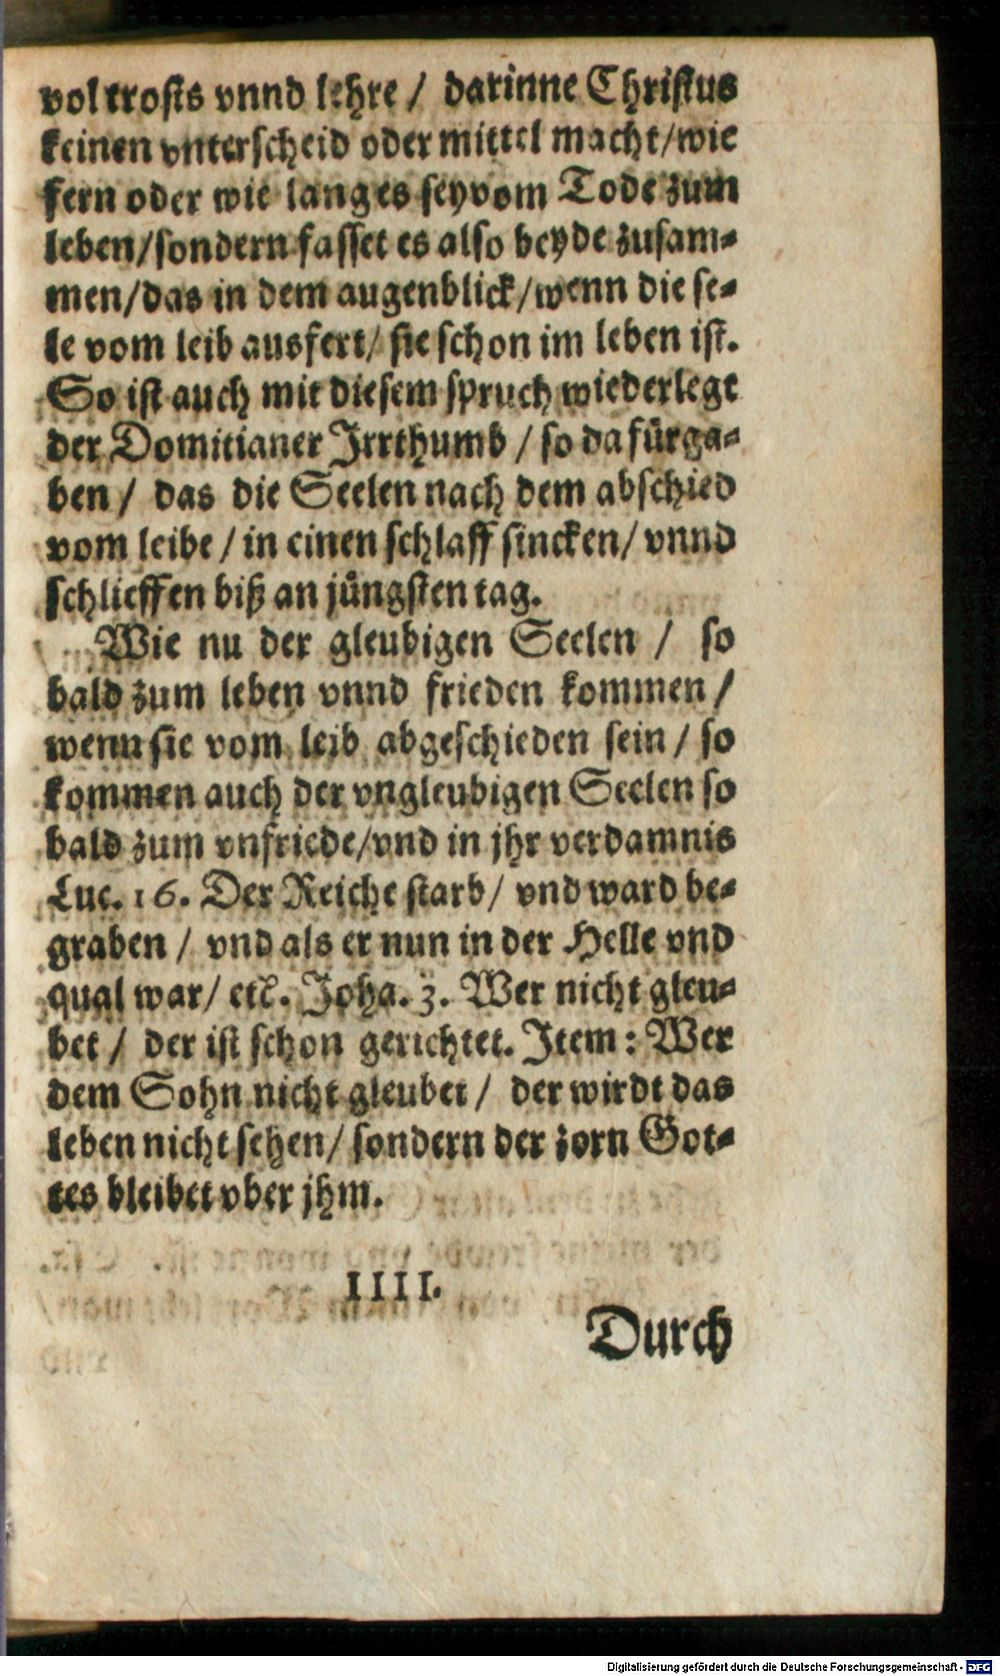 vol trosts vnnd lehre / darinne Christus
keinen vnterscheid oder mittel macht/wie
fern oder wie lang es sey vom Tode zum
leben/sondern fasset es also beyde zusam-
men/das in dem augenblick/wenn die se-
le vom leib ausfert/ sie schon im leben ist.
So ist auch mit diesem spruch wiederlegt
der Domitianer Irrthumb / so da fürga-
ben / das die Seelen nach dem abschied
vom leibe / in einen schlaff sincken/ vnnd
schlieffen biß an jüngsten tag.
Wie nu der gleubigen Seelen / so
bald zum leben vnnd frieden kommen /
wenn sie vom leib abgeschieden sein / so
kommen auch der vngleubigen Seelen so
bald zum vnfriede/vnd in jhr verdamnis
Luc. 16. Der Reiche starb/ vnd ward be-
graben / vnd als er nun in der Helle vnd
qual war/ etc. Joha. 3. Wer nicht gleu-
bet / der ist schon gerichtet. Item: Wer
dem Sohn nicht gleubet / der wirdt das
leben nicht sehen/ sondern der zorn Got-
tes bleibet vber jhm.
IIII.
Durch
Digitalisierung gefördert durch die Deutsche Forschungsgemeinschaft - DFG